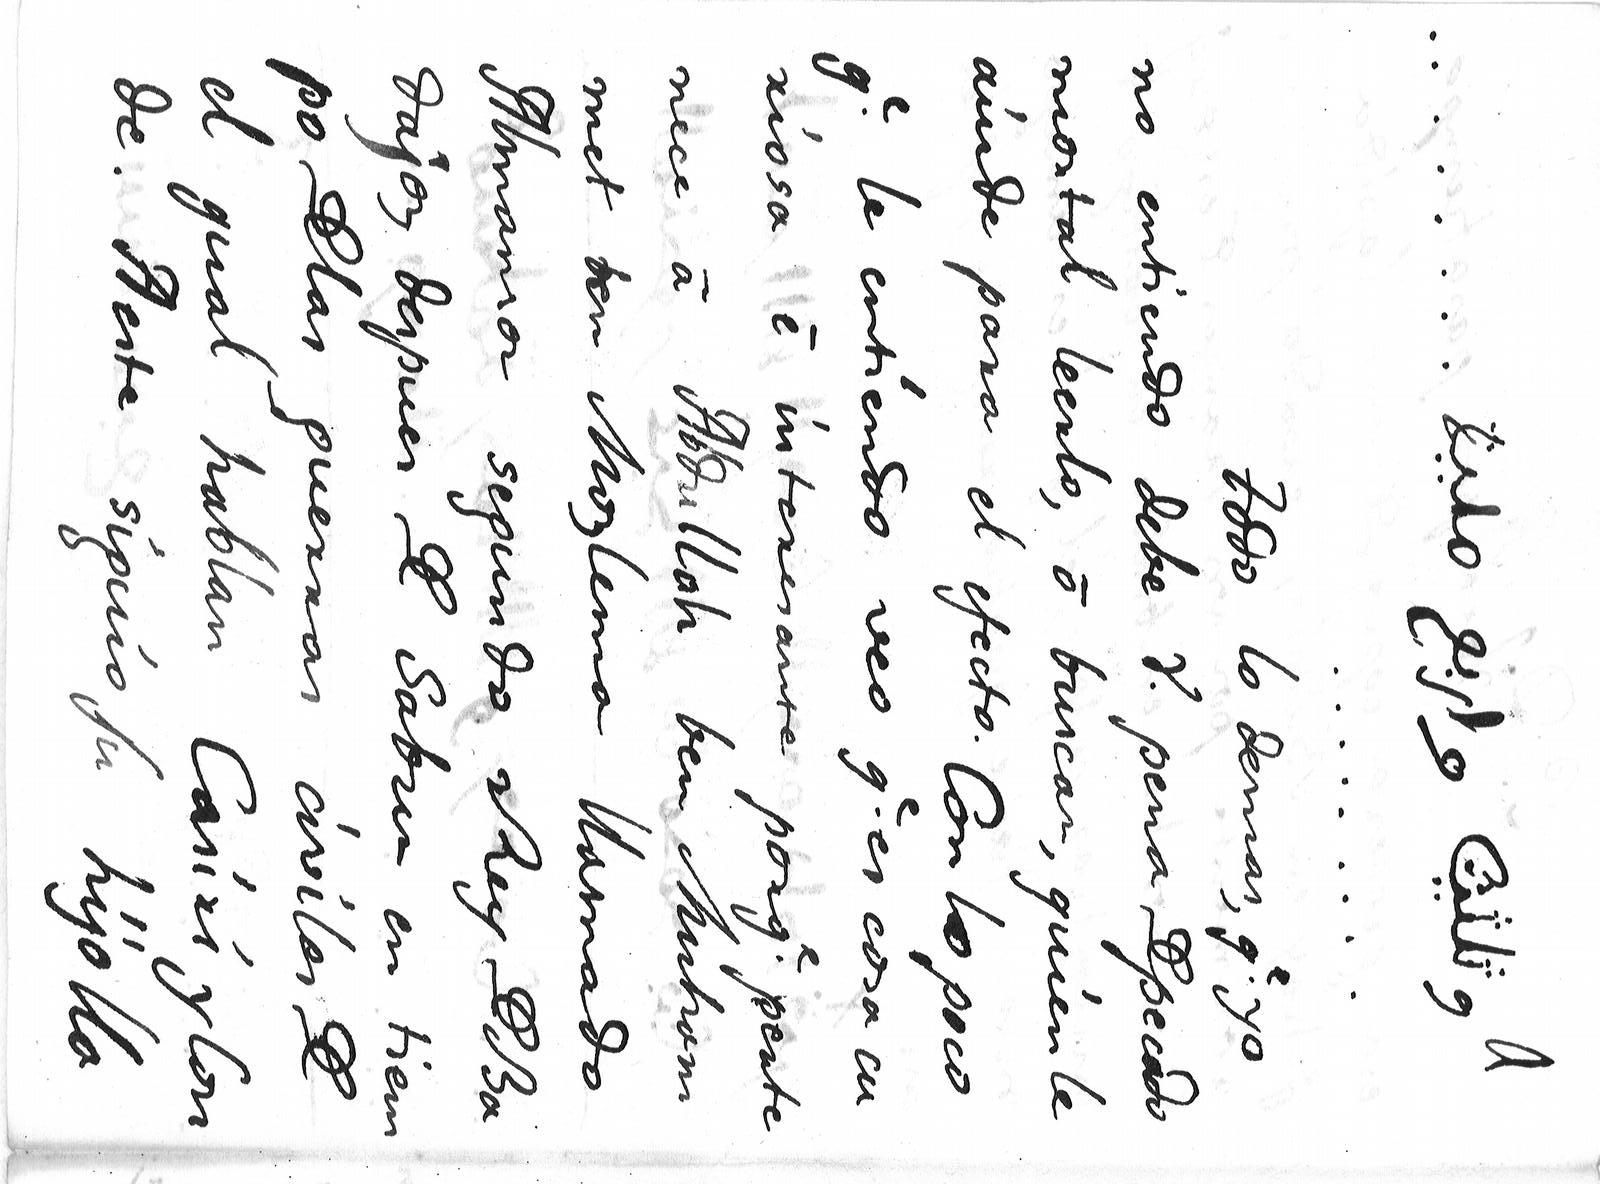 Todo lo demas, q.e yo
no entiendo debe V. pena D pecado
mortal leerlo, ō buscar, quien le
aiude para el efecto. Con lo poco
q.e le entiendo veo q.e es cosa cu
riosa ē interesante porq.e perte
nece ā Abdullah ben Muham
met ben Mozlema llamado
segundo Rey D Ba
dajoz despues D Sabur en tiem
po D las guerras civiles D
el qual hablan Casiri, y Con
de. A este siguio su hijo